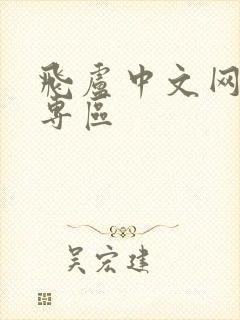 飛盧中文网
專區
吴宏建